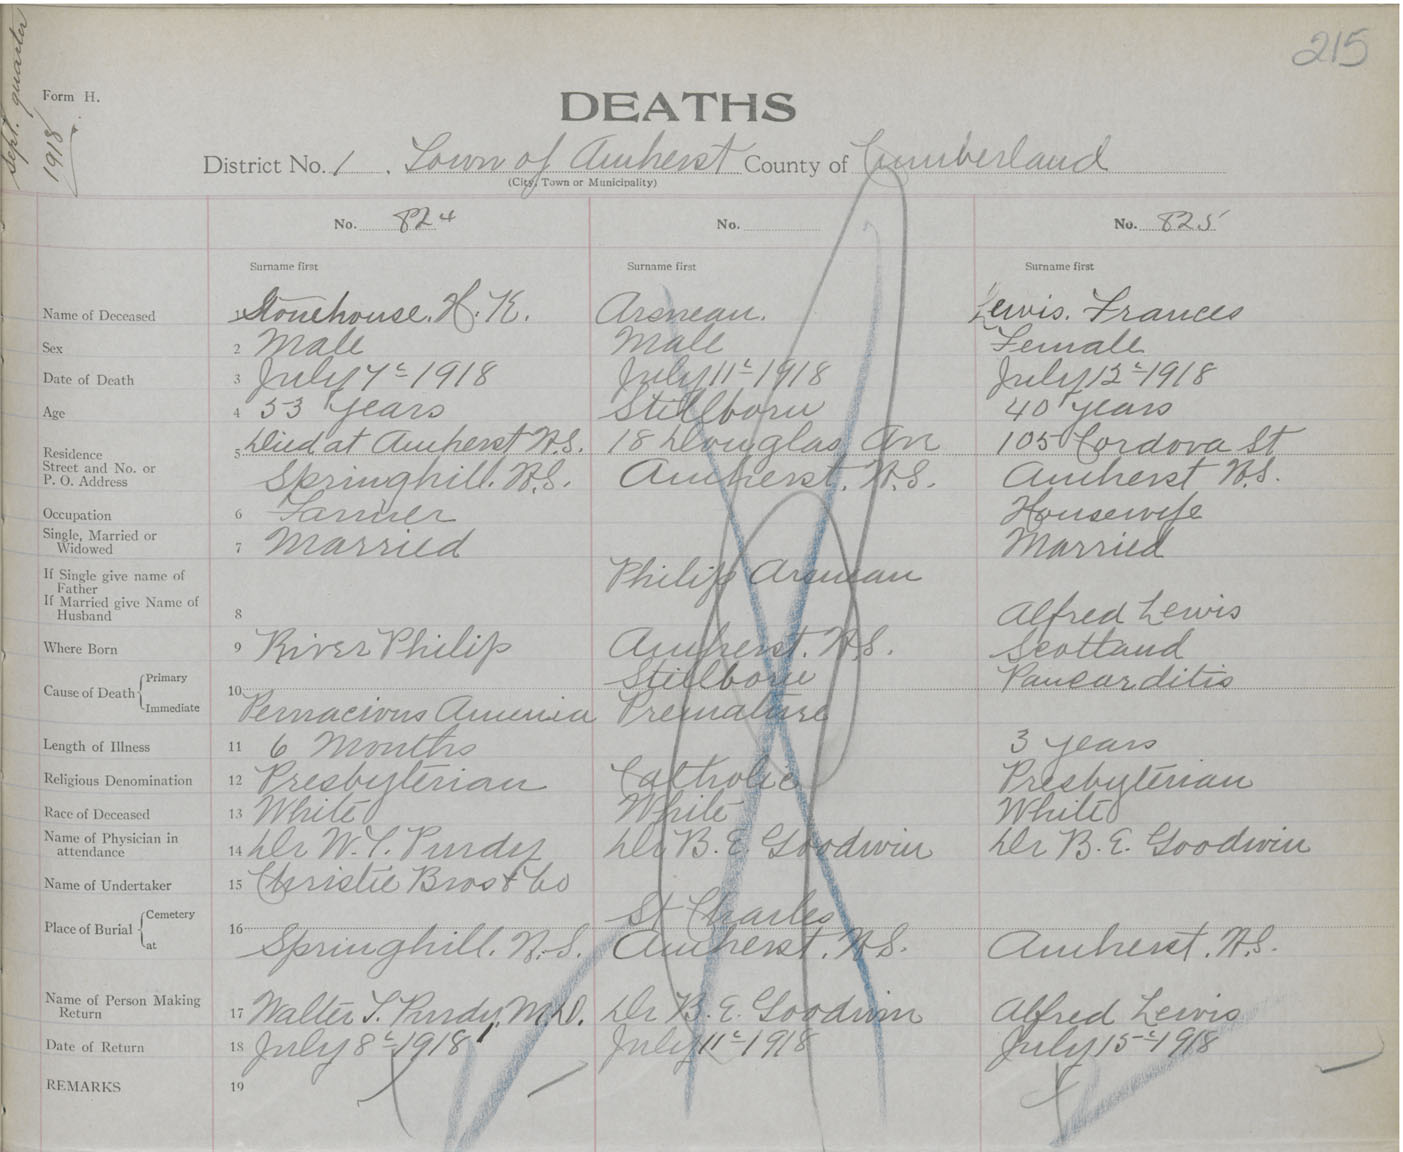 215
Sept. quarter
1918
Form H.
DEATHS
District No. 1. Town of Amherst County of Cumberland
(City, Town or Municipality)
No. 824 No. No. 825
Surname first Surname first Surname first
Name of Deceased 1 Stonehouse. H. K. Arsneau. Lewis. Frances
Sex 2 Male Male Female
Date of Death 3 July 7th 1918 July 11th 1918 July 12th 1918
Age 4 53 years Stillborn 40 years
Residence
Street and No. or
P. O. Address
5 Died at Amherst N.S. 18 Douglas Av 105 Cordova St
Springhill. N.S. Amherst. N.S. Amherst N.S.
Occupation 6 Farmer Housewife
Single, Married or
Widowed 7 Married Married
If Single give name of
Father Philip Arsneau
If Married give Name of
Husband 8 Alfred Lewis
Where Born 9 River Philip Amherst. N.S. Scotland
Cause of Death Primary 10 Stillborn Pancarditis
Immediate Pernacious Amenia Premature
Length of Illness 11 6 Months 3 years
Religious Denomination 12 Presbyterian Catholic Presbyterian
Race of Deceased 13 White White White
Name of Physician in
attendance 14 Dr W. T. Purdy Dr B. E. Goodwin Dr B. E. Goodwin
Name of Undertaker 15 Christie Bros & Co
Place of Burial Cemetery 16 St Charles
at Springhill. N.S. Amherst. N.S. Amherst. N.S.
Name of Person Making
Return 17 Walter T. Purdy, M.D. Dr B. E. Goodwin Alfred Lewis
Date of Return 18 July 8th 1918 July 11th 1918 July 15th 1918
REMARKS 19